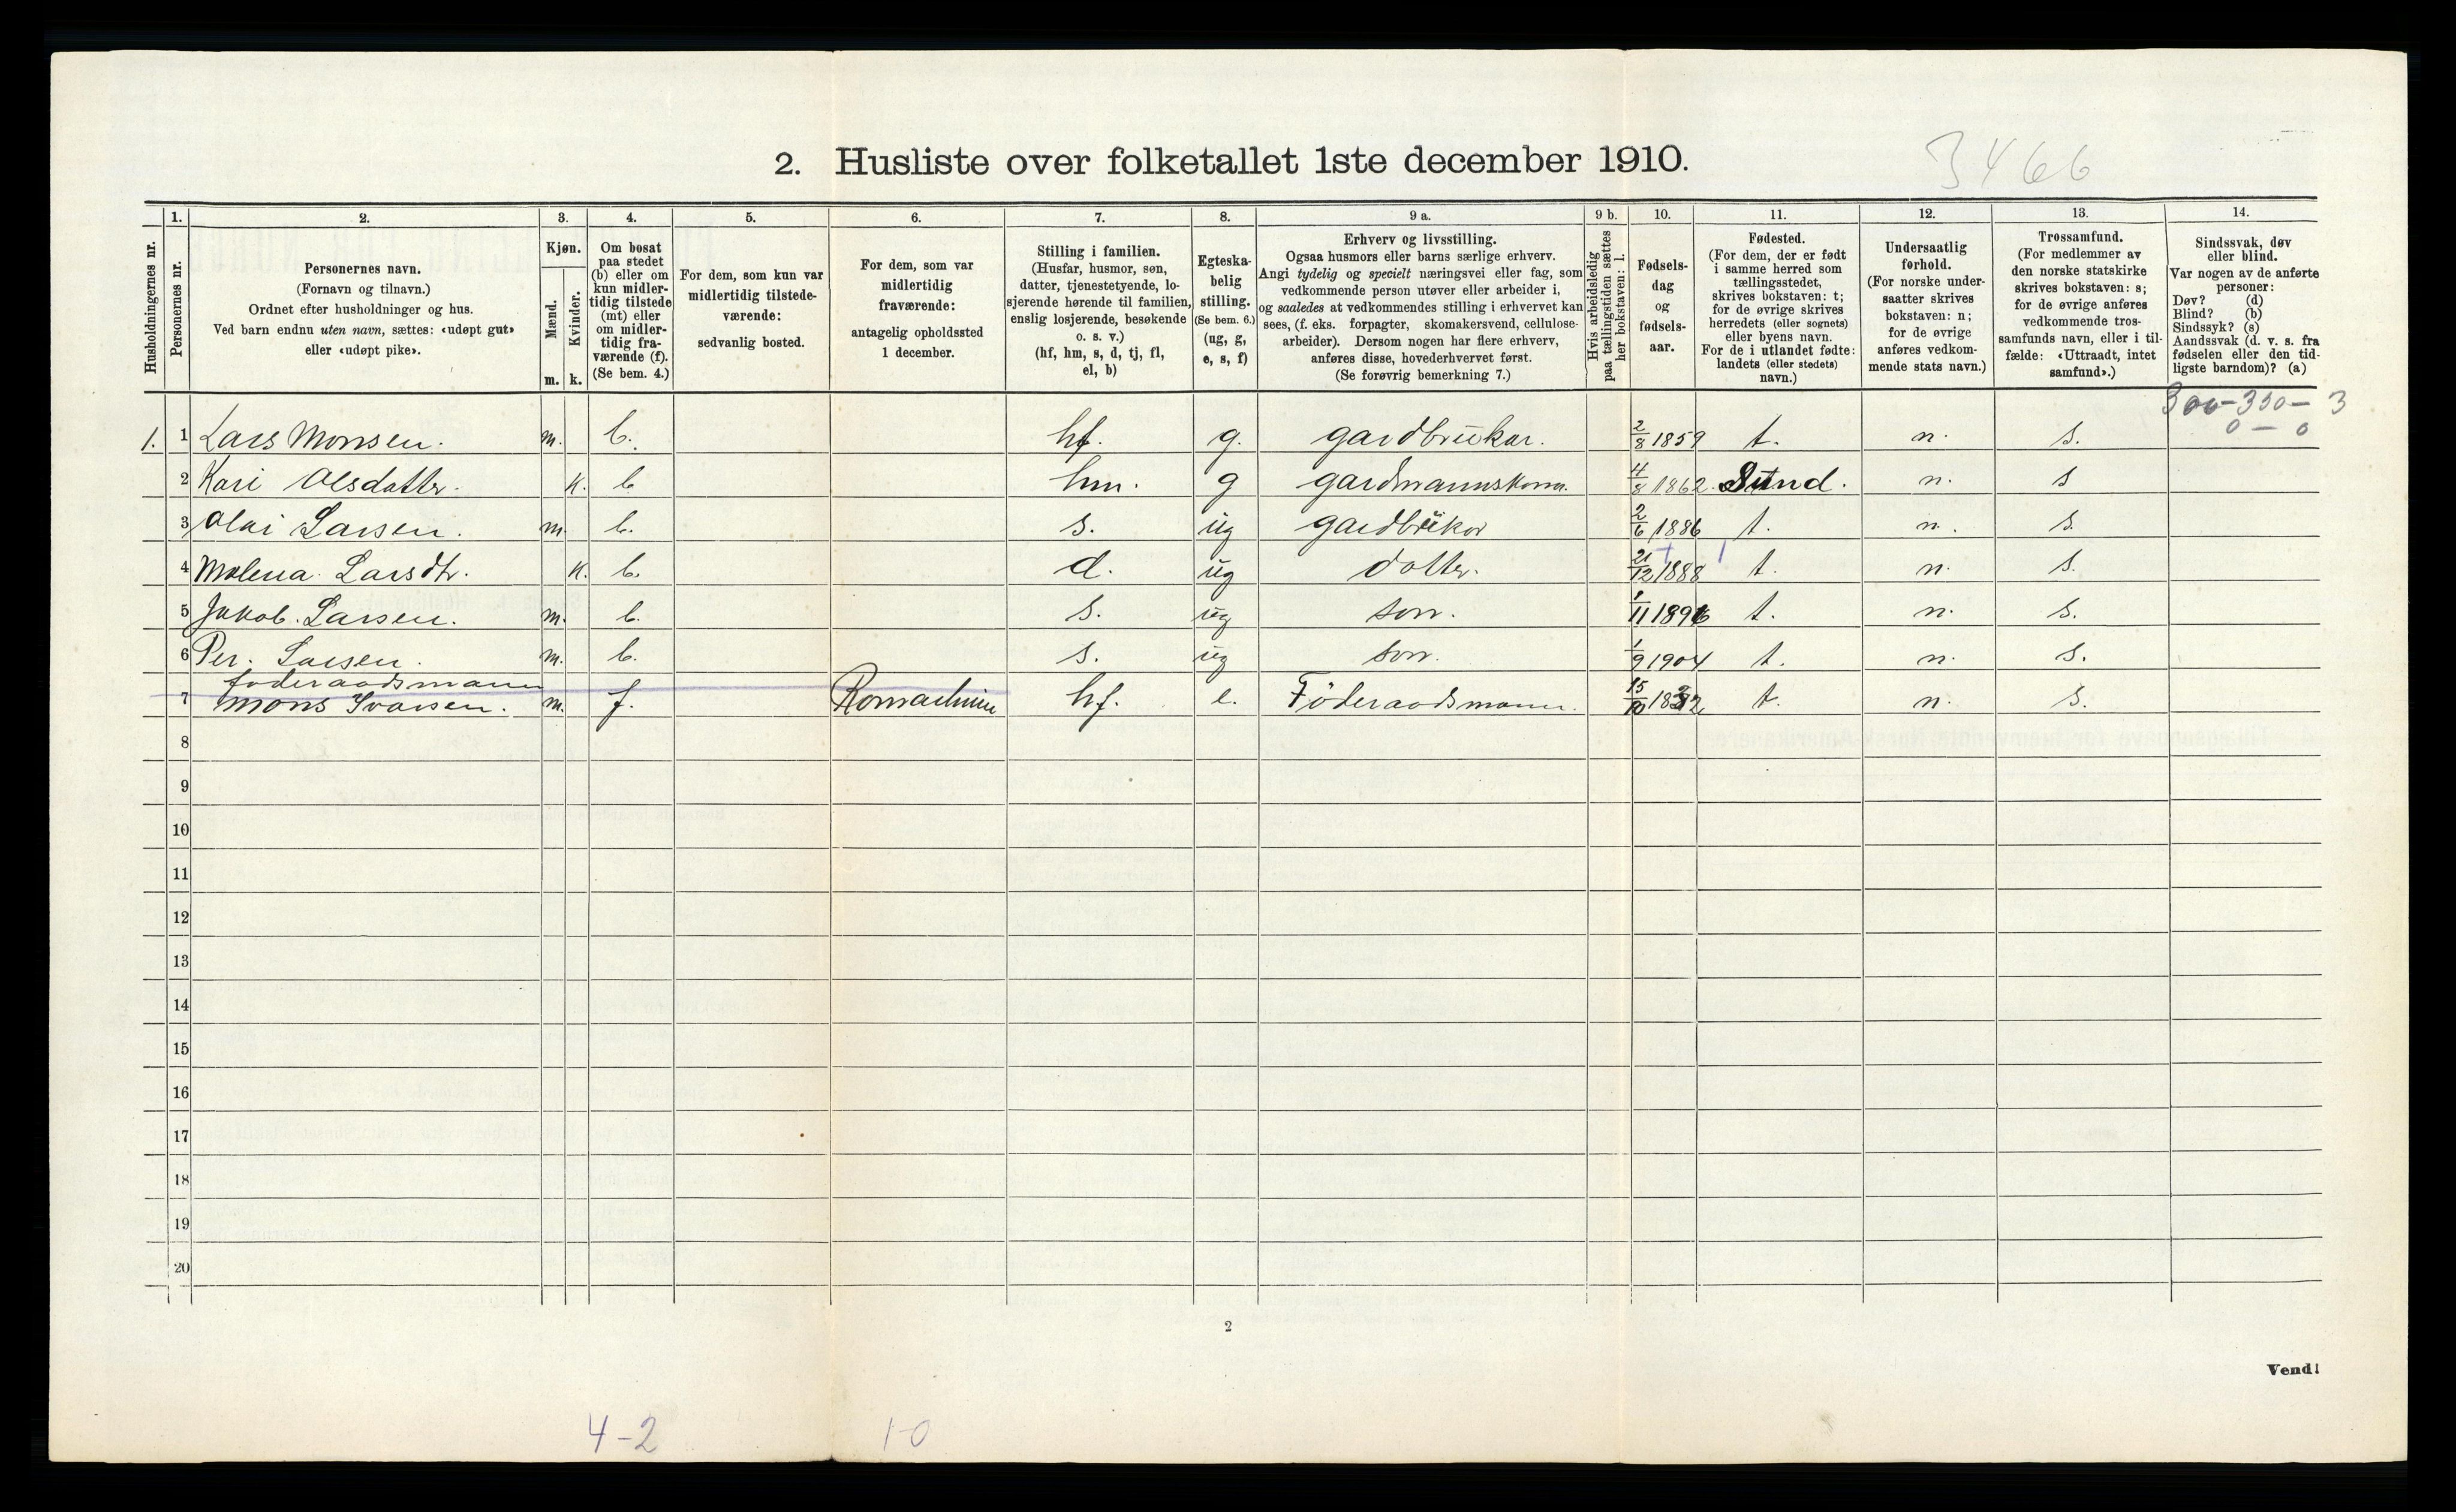 2. Husliste over folketallet 1ste december 1910.
3466
Husholdningernes nr.
1. Personernes nr.
2. Personernes navn. (Fornavn og tilnavn.) Ordnet efter husholdninger og hus. Ved barn endnu uten navn, sættes: «udøpt gut» eller «udøpt pike».
3. Kjøn. Mænd. m. Kvinder. k.
4. Om bosat paa stedet (b) eller om kun midlertidig tilstede (mt) eller om midlertidig fraværende (f). (Se bem. 4.)
5. For dem, som kun var midlertidig tilstedeværende: sedvanlig bosted.
6. For dem, som var midlertidig fraværende: antagelig opholdssted 1 december.
7. Stilling i familien. (Husfar, husmor, søn, datter, tjenestetyende, losjerende hørende til familien, enslig losjerende, besøkende o. s. v.) (hf, hm, s, d, tj, fl, el, b)
8. Egteskabelig stilling. (Se bem. 6.) (ug, g, e, s, f)
9 a. Erhverv og livsstilling. Ogsaa husmors eller barns særlige erhverv. Angi tydelig og specielt næringsvei eller fag, som vedkommende person utøver eller arbeider i, og saaledes at vedkommendes stilling i erhvervet kan sees, (f. eks. forpagter, skomakersvend, cellulosearbeider). Dersom nogen har flere erhverv, anføres disse, hovederhvervet først. (Se forøvrig bemerkning 7.)
9 b. Hvis arbeidsledig paa tællingstiden sættes her bokstaven: l.
10. Fødselsdag og fødselsaar.
11. Fødested. (For dem, der er født i samme herred som tællingsstedet, skrives bokstaven: t; for de øvrige skrives herredets (eller sognets) eller byens navn. For de i utlandet fødte: landets (eller stedets) navn.)
12. Undersaatlig forhold. (For norske undersaatter skrives bokstaven: n; for de øvrige anføres vedkommende stats navn.)
13. Trossamfund. (For medlemmer av den norske statskirke skrives bokstaven: s; for de øvrige anføres vedkommende trossamfunds navn, eller i tilfælde: «Uttraadt, intet samfund».)
14. Sindssvak, døv eller blind. Var nogen av de anførte personer: Døv? (d) Blind? (b) Sindssyk? (s) Aandssvak (d. v. s. fra fødselen eller den tidligste barndom)? (a)
300-350-3
0 - 0
1. 1 Lars Monsen. m. b. hf. g. gardbrükar. 2/8 1859 t. n. s.
2 Kari Olsdatter. k. b hm. g gardmannskona. 4/8 1862. Sund. n. s
3 Olai Larsen. m. b. s. ug gardbrükar 2/6 1886 t. n. s.
4 Malena Larsdtr. k. b. d. ug dotter. 21/12 1888 t. n. s.
5 Jakob. Larsen. m. b. s. ug son. 1/11 1896 t. n. s.
6 Per. Larsen. m. b. s. ug son. 1/9 1904 t. n. s.
föderaadsmann
7 Mons Ivarsen. m. f. hf. e. Föderaadsmann. 15/10 1832 t. n. s.
8
9
10
11
12
13
14
15
16
17
18
19
20
2
Vend!
4-2
1-0